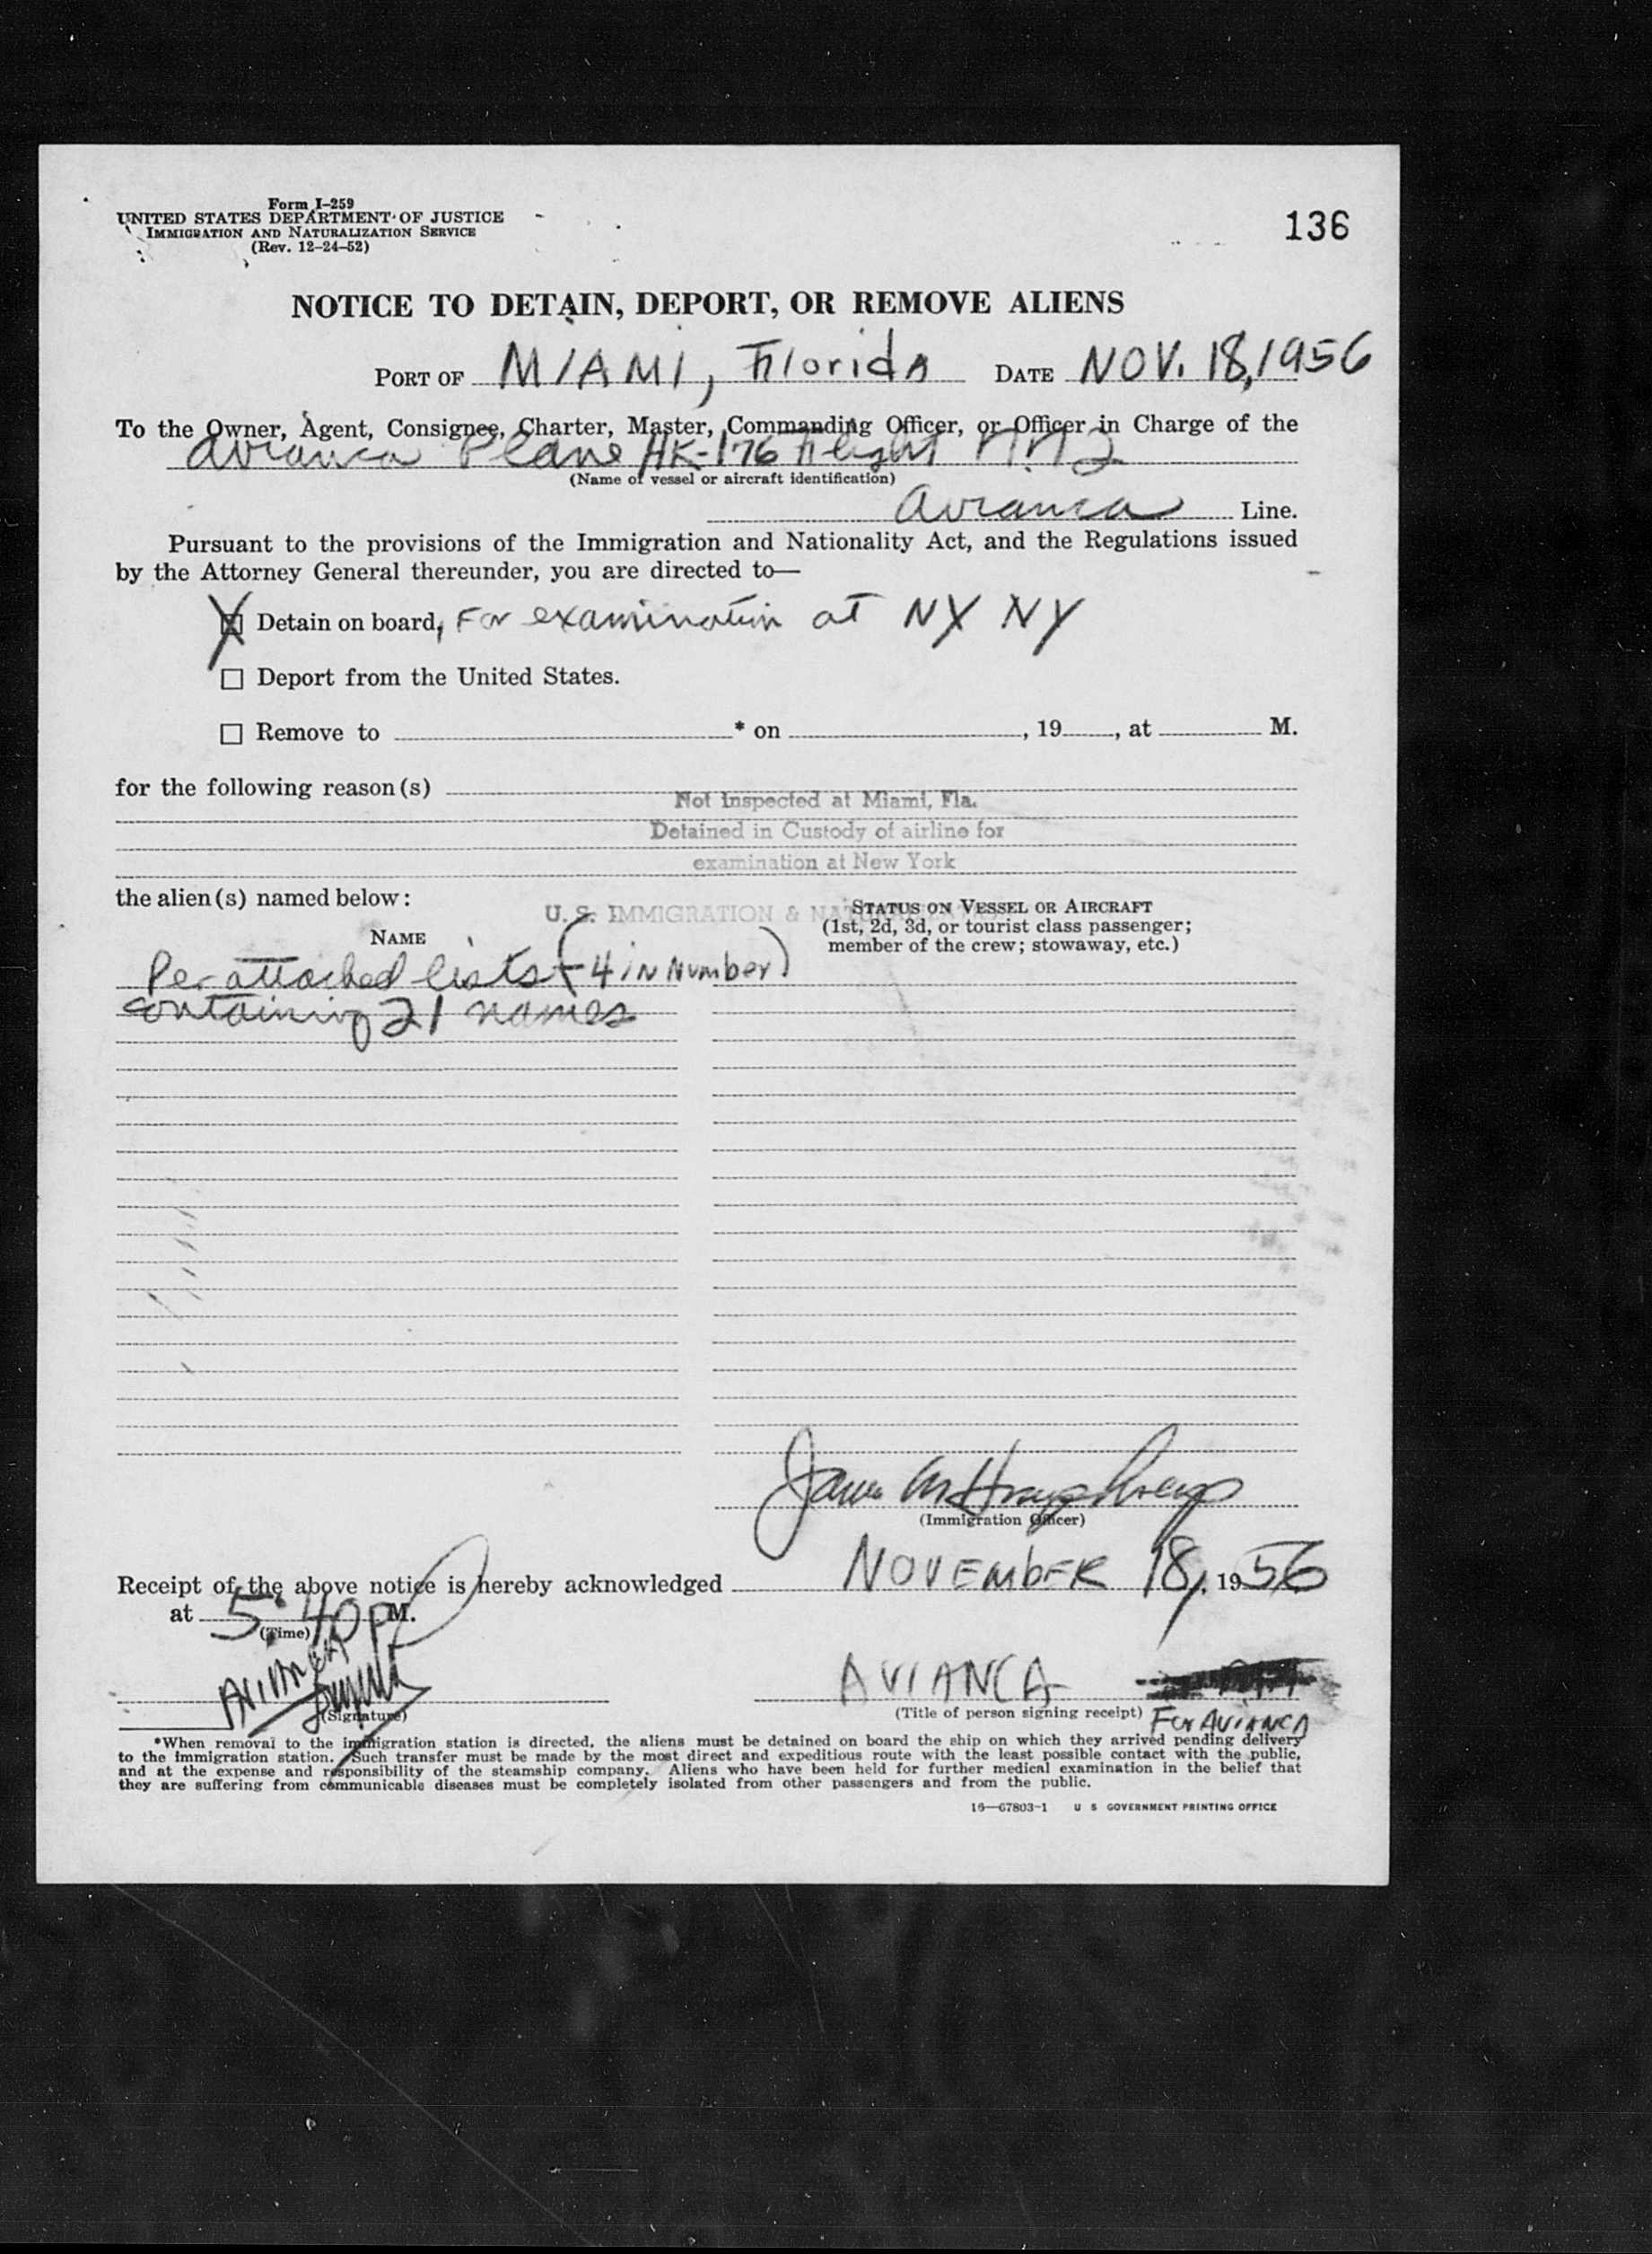 Form I-259
UNITED STATES DEPARTMENT OF JUSTICE
IMMIGRATION AND NATURALIZATION SERVICE
(Rev. 12-24-52)
136
NOTICE TO DETAIN, DEPORT, OR REMOVE ALIENS
PORT OF MIAMI, Florida DATE NOV. 18, 1956
To the Owner, Agent, Consignee, Charter, Master, Commanding Officer, or Officer in Charge of the
Avianca Plane HK-176 Flight
(Name of vessel or aircraft identification)
Avianca Line.
Pursuant to the provisions of the Immigration and Nationality Act, and the Regulations issued
by the Attorney General thereunder, you are directed to—
X Detain on board, For examination at NY NY
☐ Deport from the United States.
☐ Remove to * on , 19 , at M.
for the following reason(s)
Not Inspected at Miami, Fla.
Detained in Custody of airline for
examination at New York
the alien(s) named below:
U. S. IMMIGRATION &
STATUS ON VESSEL OR AIRCRAFT
(1st, 2d, 3d, or tourist class passenger;
member of the crew; stowaway, etc.)
NAME
Per attached lists (4 in Number)
containing 21 names
(Immigration Officer)
Receipt of the above notice is hereby acknowledged NOVEMBER 18, 1956
at 5:40 P M.
(Time)
AVIANCA
(Signature)
AVIANCA
(Title of person signing receipt)
For AVIANCA
*When removal to the immigration station is directed, the aliens must be detained on board the ship on which they arrived pending delivery
to the immigration station. Such transfer must be made by the most direct and expeditious route with the least possible contact with the public,
and at the expense and responsibility of the steamship company. Aliens who have been held for further medical examination in the belief that
they are suffering from communicable diseases must be completely isolated from other passengers and from the public.
16—67803-1 U S GOVERNMENT PRINTING OFFICE